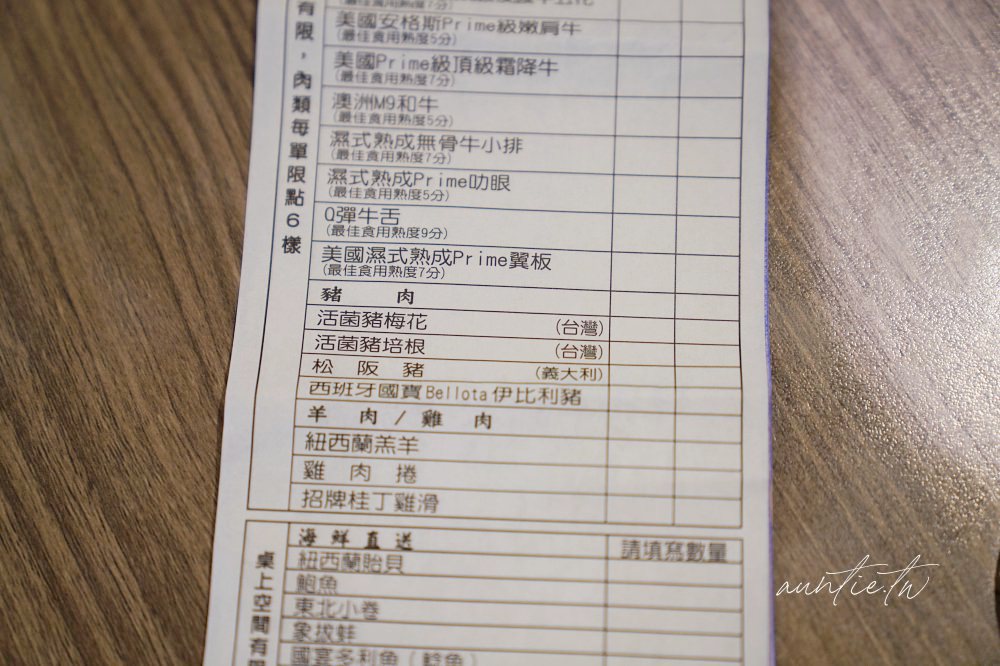 有限，肉類每單限點6樣
(最佳食用熟度7分)
美國安格斯Prime級嫩肩牛
(最佳食用熟度5分)
美國Prime級頂級霜降牛
(最佳食用熟度7分)
澳洲M9和牛
(最佳食用熟度5分)
濕式熟成無骨牛小排
(最佳食用熟度7分)
濕式熟成Prime肋眼
(最佳食用熟度5分)
Q彈牛舌
(最佳食用熟度9分)
美國濕式熟成Prime翼板
(最佳食用熟度7分)
豬 肉
活菌豬梅花 (台灣)
活菌豬培根 (台灣)
松 阪 豬 (義大利)
西班牙國寶Bellota伊比利豬
羊 肉 / 雞 肉
紐西蘭羔羊
雞 肉 捲
招牌桂丁雞滑
桌上空間有限
海鮮直送 請填寫數量
紐西蘭貽貝
鮑魚
東北小卷
象拔蚌
國宴多利魚(鯰魚)
auntie.tw